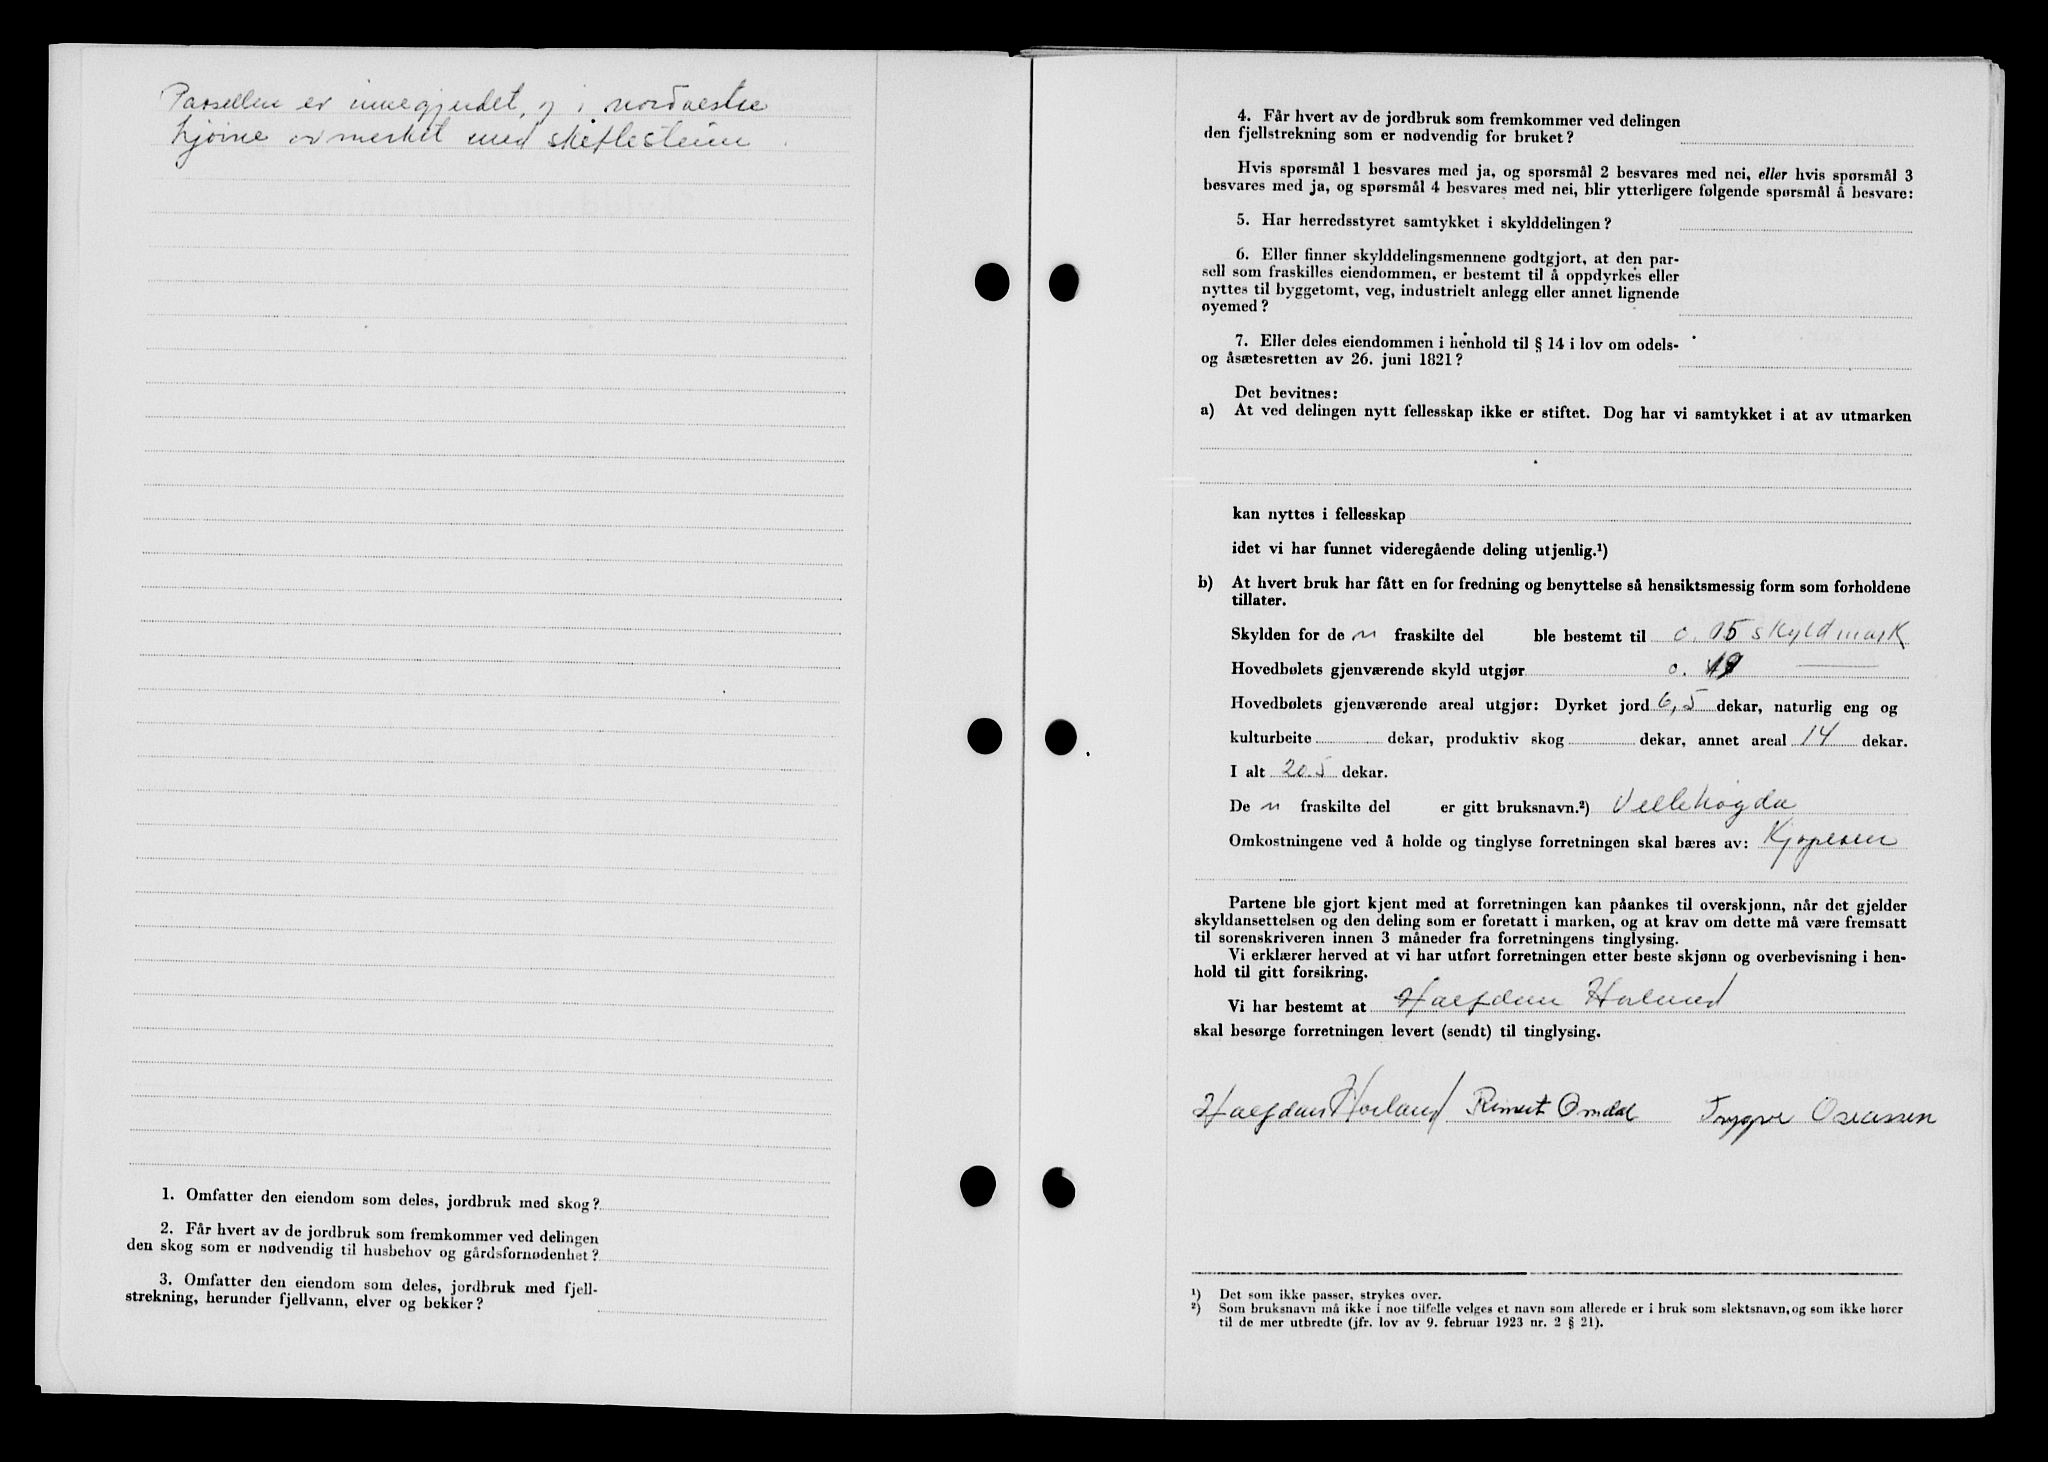 Parsellen er innegjerdet, og i nordvestre
hjørne er merket med skiftestein
1. Omfatter den eiendom som deles, jordbruk med skog?
2. Får hvert av de jordbruk som fremkommer ved delingen
den skog som er nødvendig til husbehov og gårdsfornødenhet?
3. Omfatter den eiendom som deles, jordbruk med fjell-
strekning, herunder fjellvann, elver og bekker?
4. Får hvert av de jordbruk som fremkommer ved delingen
den fjellstrekning som er nødvendig for bruket?
Hvis spørsmål 1 besvares med ja, og spørsmål 2 besvares med nei, eller hvis spørsmål 3
besvares med ja, og spørsmål 4 besvares med nei, blir ytterligere følgende spørsmål å besvare:
5. Har herredsstyret samtykket i skylddelingen?
6. Eller finner skylddelingsmennene godtgjort, at den par-
sell som fraskilles eiendommen, er bestemt til å oppdyrkes eller
nyttes til byggetomt, veg, industrielt anlegg eller annet lignende
øyemed?
7. Eller deles eiendommen i henhold til § 14 i lov om odels-
og åsætesretten av 26. juni 1821?
Det bevitnes:
a) At ved delingen nytt fellesskap ikke er stiftet. Dog har vi samtykket i at av utmarken
kan nyttes i fellesskap
idet vi har funnet videregående deling utjenlig.¹)
b) At hvert bruk har fått en for fredning og benyttelse så hensiktsmessig form som forholdene
tillater.
Skylden for de n fraskilte del ble bestemt til 0.15 skyldmark
Hovedbølets gjenværende skyld utgjør 0.
Hovedbølets gjenværende areal utgjør: Dyrket jord 6,5 dekar, naturlig eng og
kulturbeite dekar, produktiv skog dekar, annet areal 14 dekar.
I alt 20.5 dekar.
De n fraskilte del er gitt bruksnavn.²) Vellehøgda
Omkostningene ved å holde og tinglyse forretningen skal bæres av: Kjøperen
Partene ble gjort kjent med at forretningen kan påankes til overskjønn, når det gjelder
skyldansettelsen og den deling som er foretatt i marken, og at krav om dette må være fremsatt
til sorenskriveren innen 3 måneder fra forretningens tinglysing.
Vi erklærer herved at vi har utført forretningen etter beste skjønn og overbevisning i hen-
hold til gitt forsikring.
Vi har bestemt at Halfdan Horland
skal besørge forretningen levert (sendt) til tinglysing.
Halfdan Horland Reinert Omdal Trygve Oseassen
¹) Det som ikke passer, strykes over.
²) Som bruksnavn må ikke i noe tilfelle velges et navn som allerede er i bruk som slektsnavn, og som ikke hører
til de mer utbredte (jfr. lov av 9. februar 1923 nr. 2 § 21).